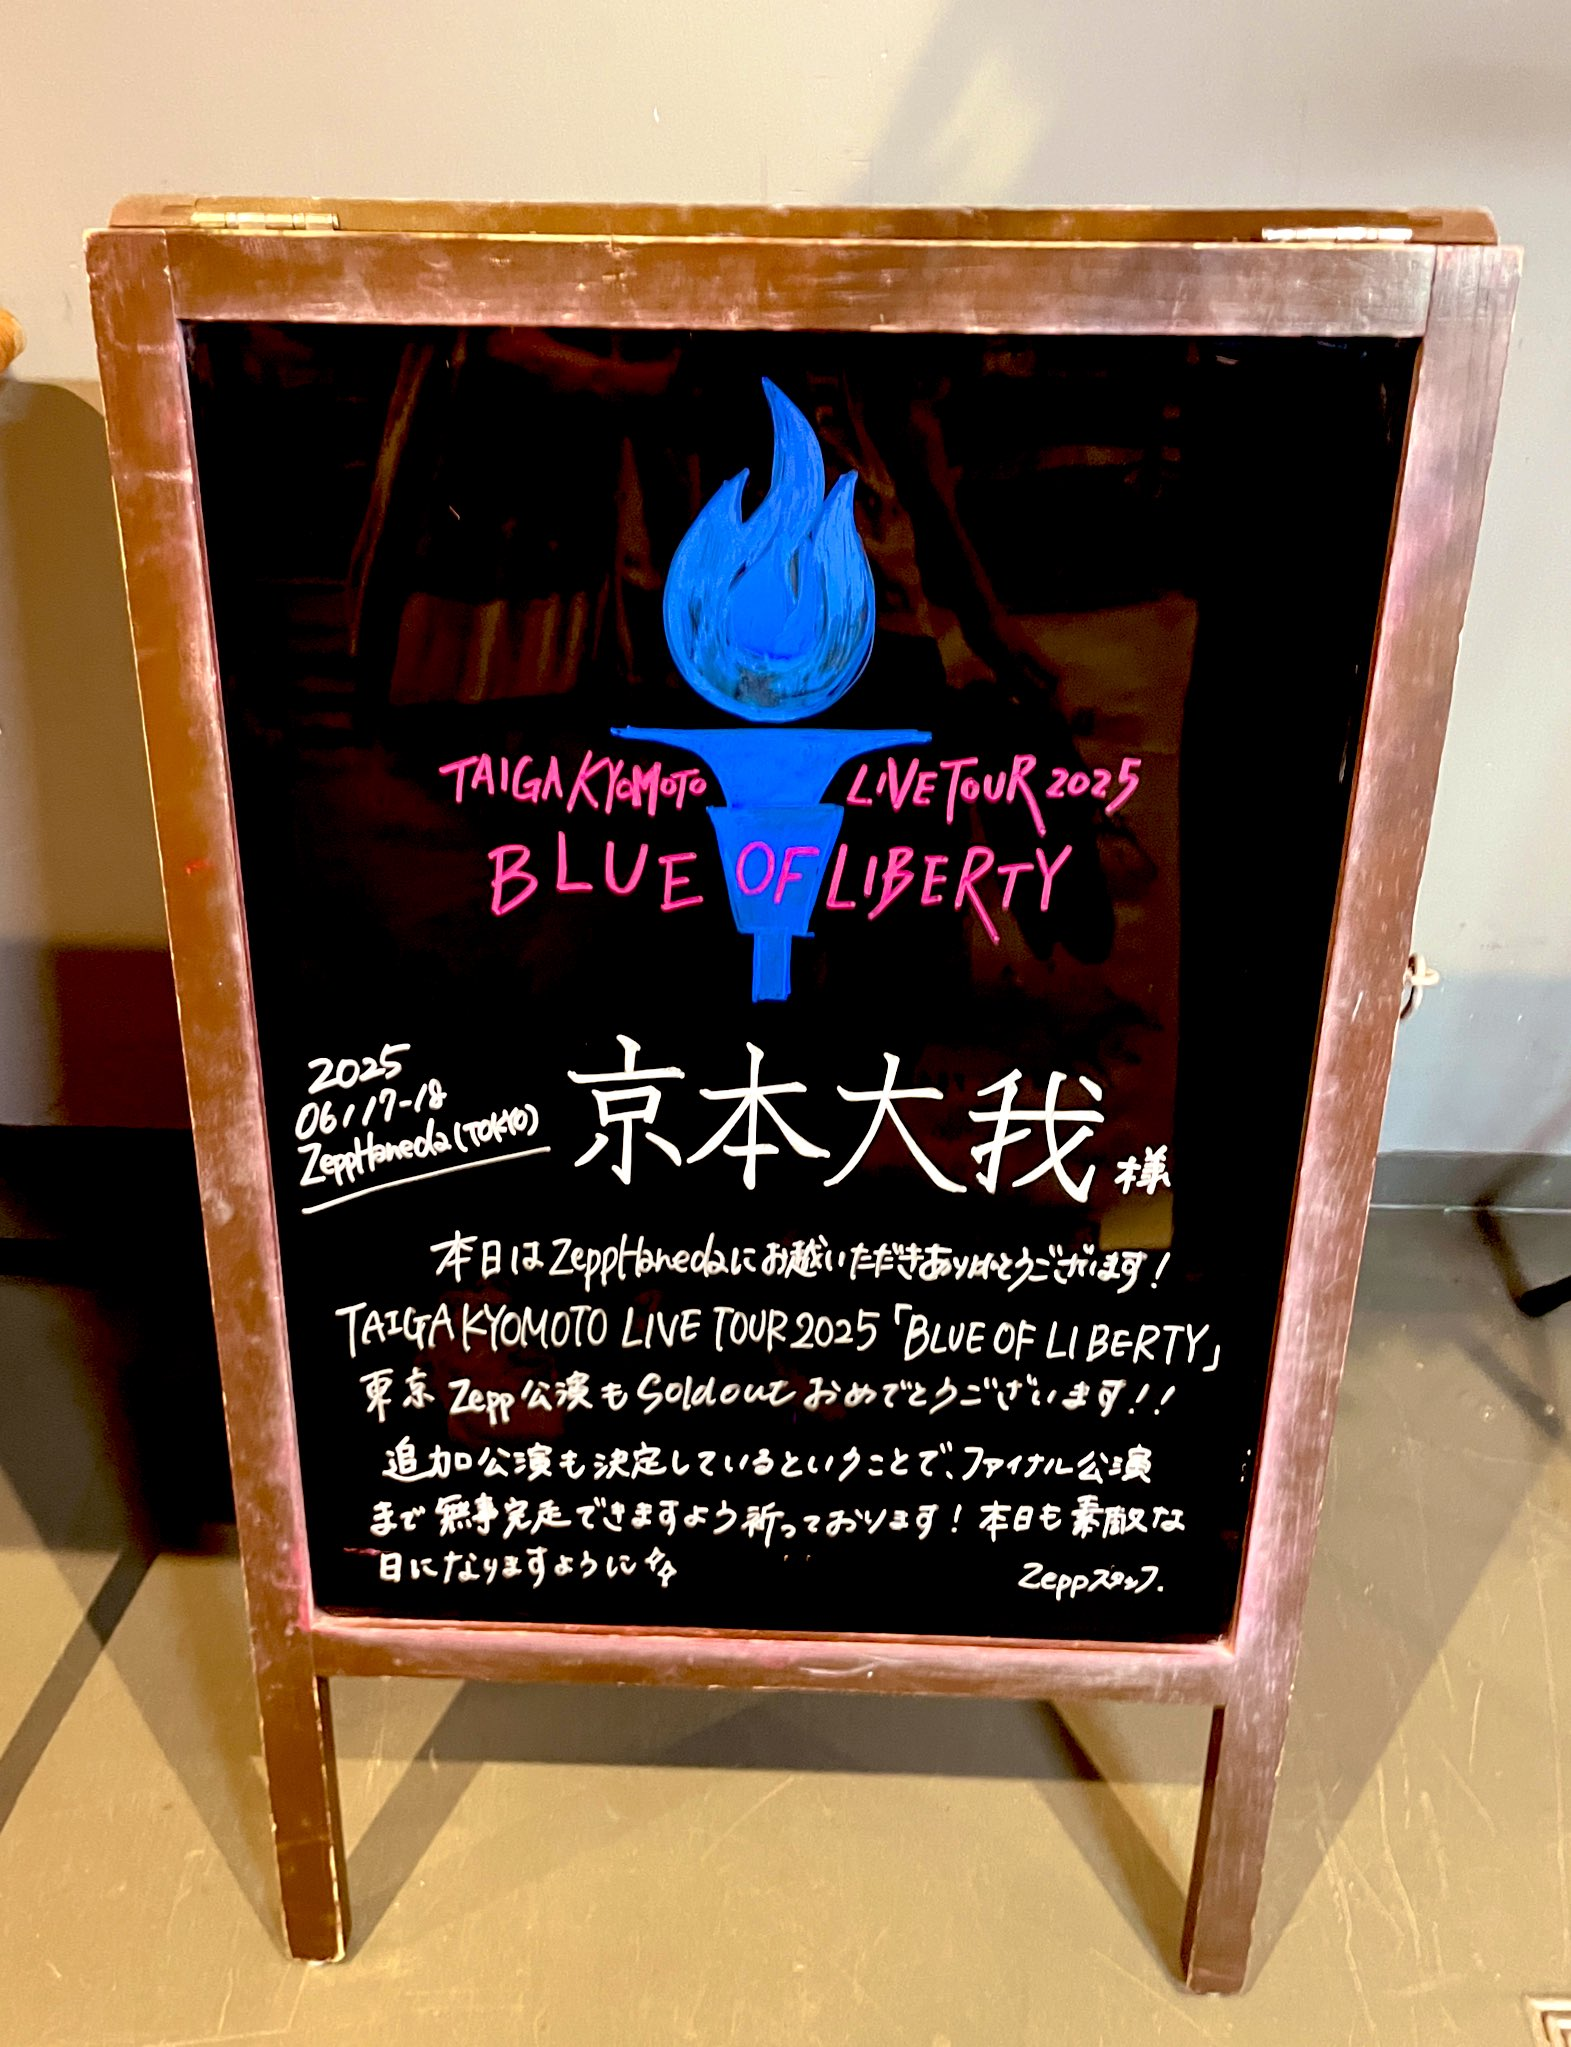 TAIGA KYOMOTO LIVE TOUR 2025
BLUE OF LIBERTY
2025
06/17-18
ZeppHaneda(TOKYO)
京本大我様
本日はZeppHanedaにお越しいただきありがとうございます!
TAIGA KYOMOTO LIVE TOUR 2025「BLUE OF LIBERTY」
東京 Zepp公演も Soldout おめでとうございます!!
追加公演も決定しているということで、ファイナル公演
まで無事完走できますよう祈っております!本日も素敵な
日になりますように
Zeppスタッフ.